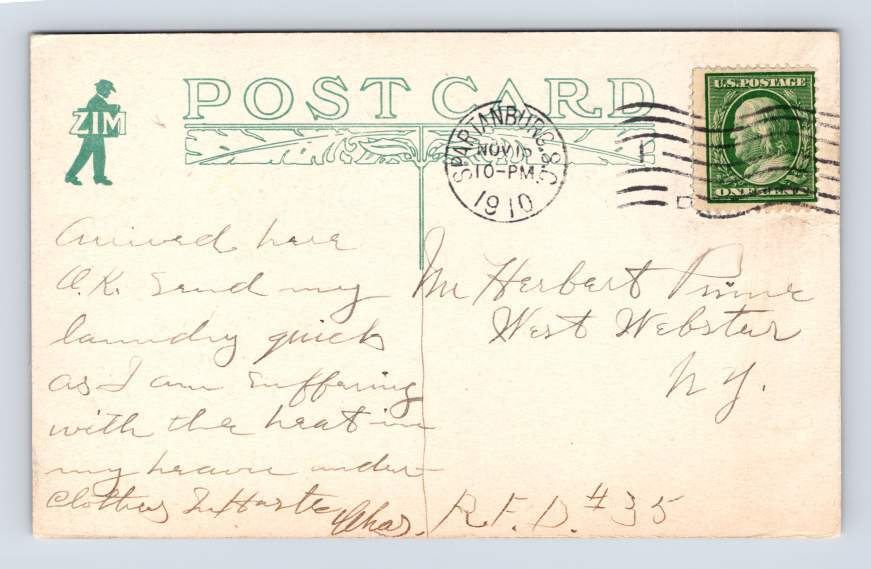 ZIM
POST CARD
U.S. POSTAGE
ONE CENT
SPARTANBURG, S.C.
NOV 15
10-PM
1910
Arrived here
O.K. Send my
laundry quick
as I am suffering
with the heat in
my heavie under-
clothes In Haste
Chas.
Mr Herbert
West Webster
N.Y.
R.F.D. #35